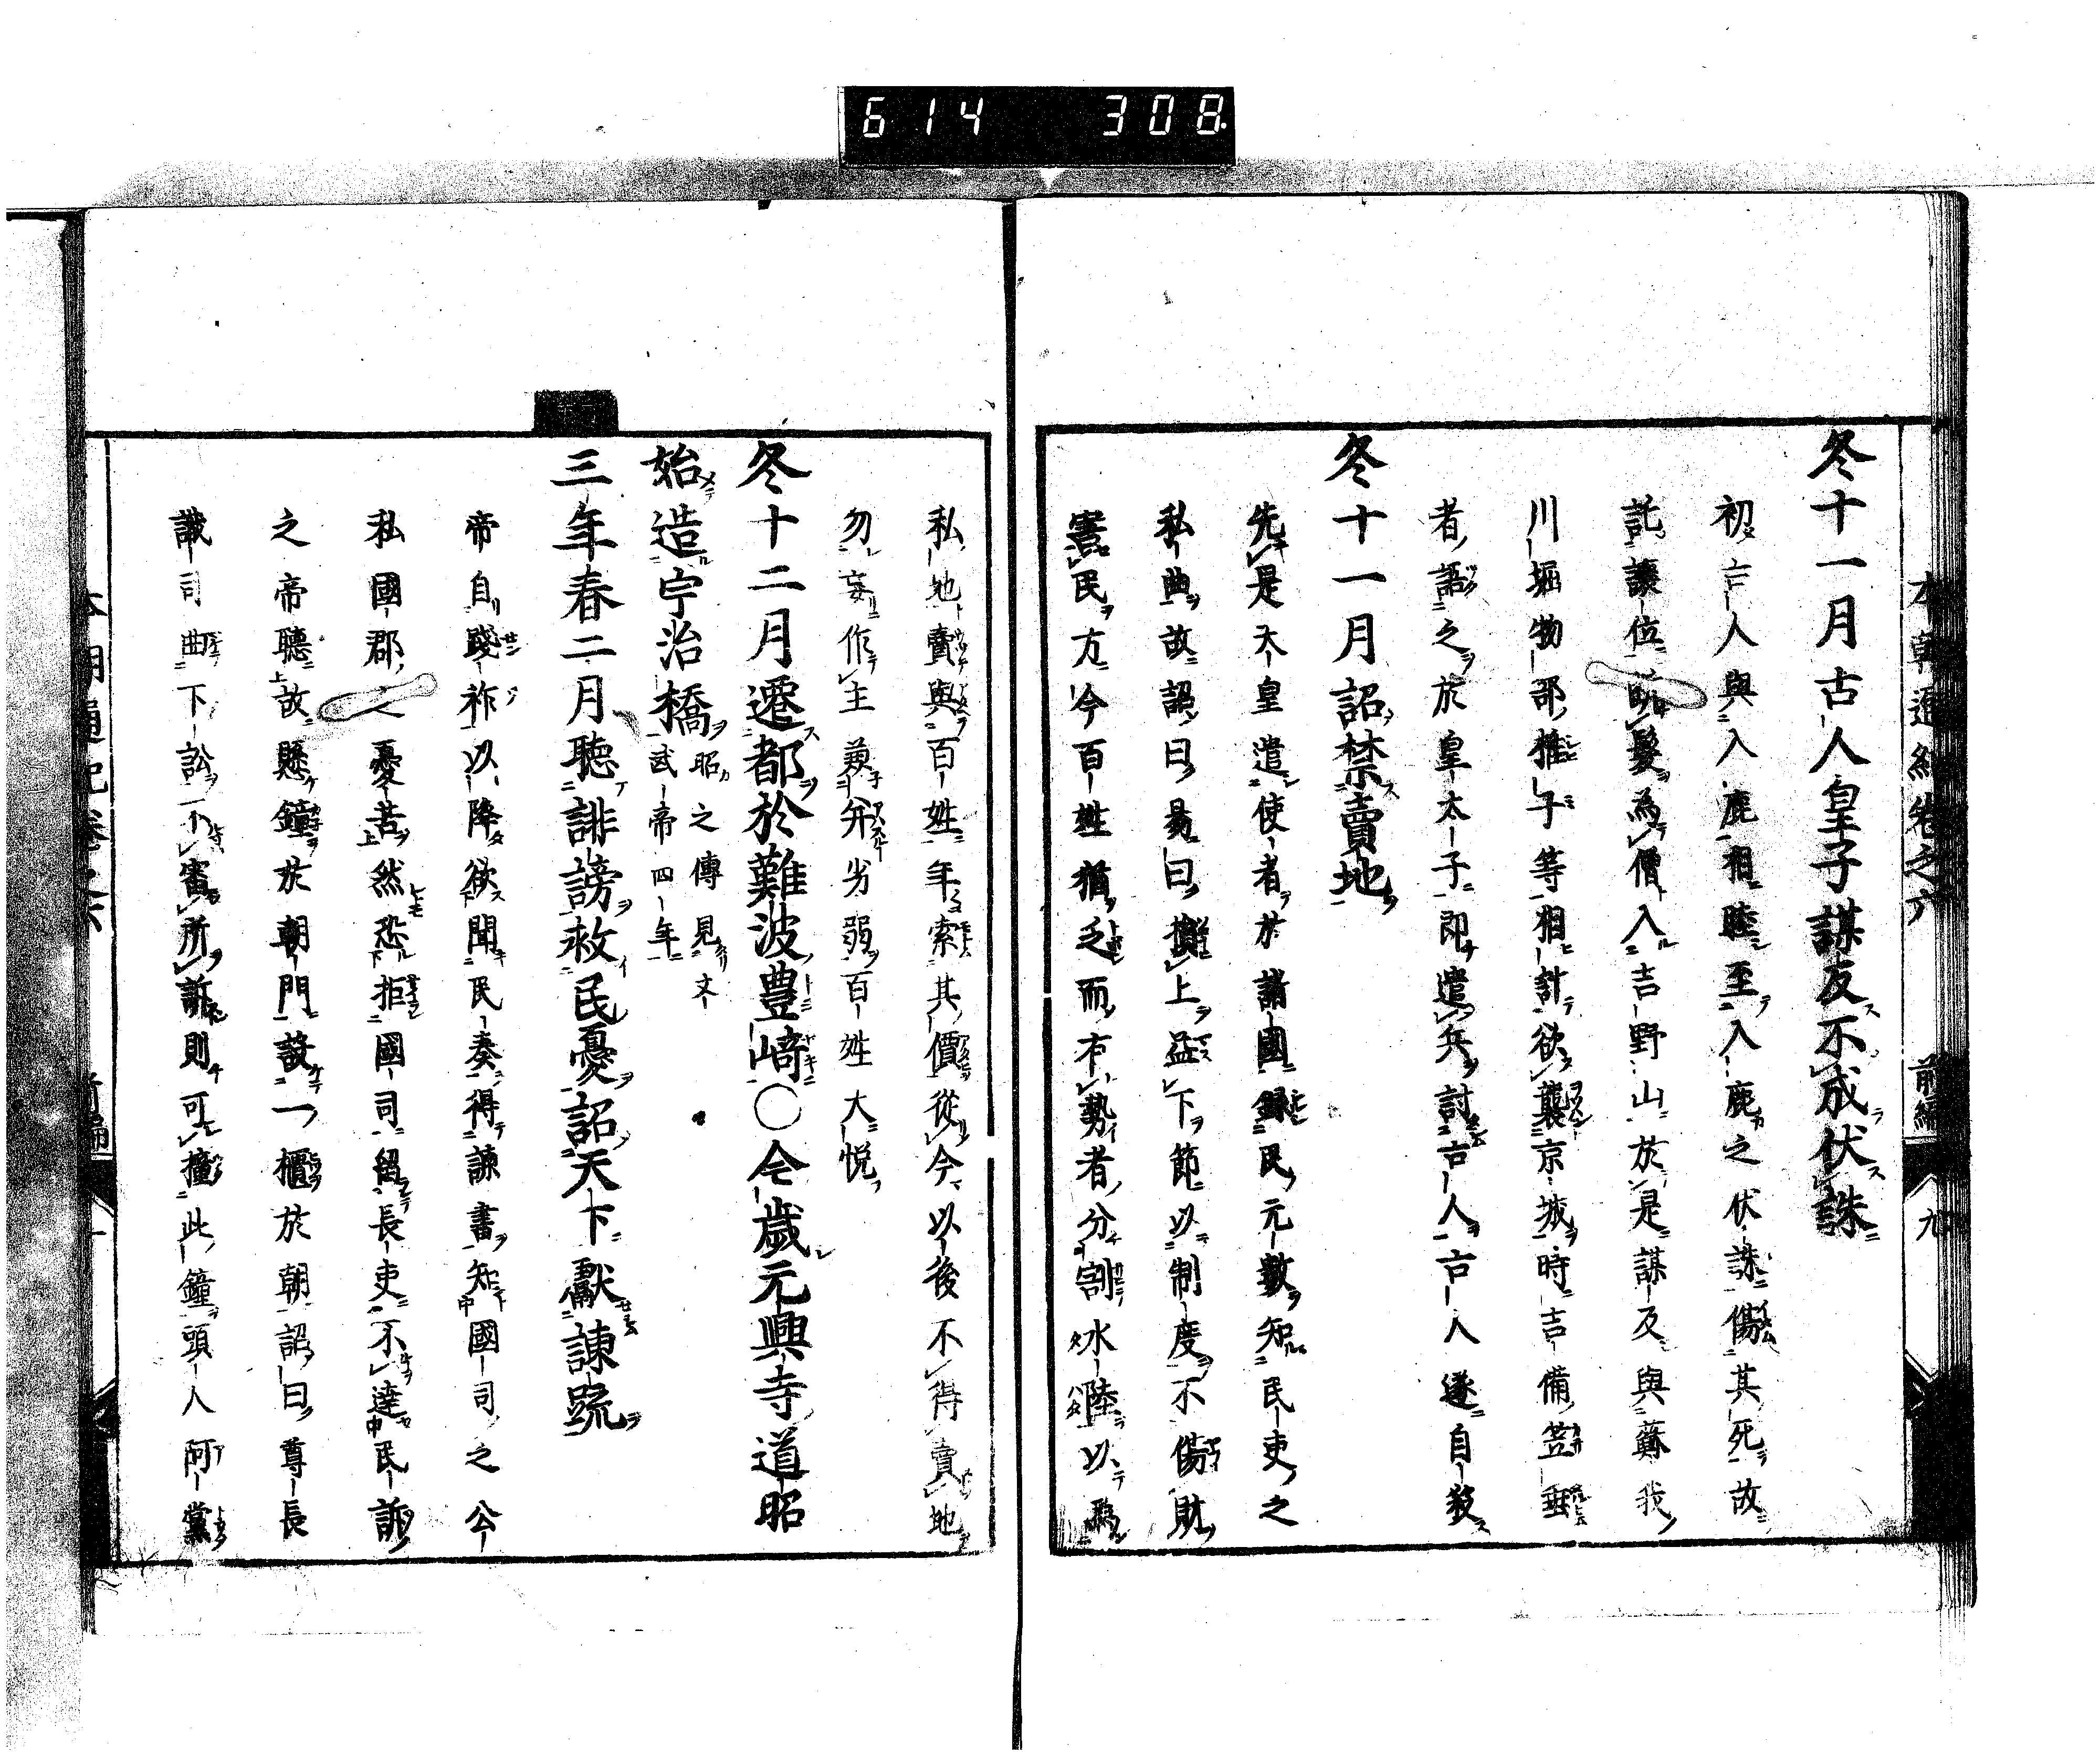 614 308
本朝通紀卷之六 前編 九
冬十一月古人皇子謀反不成伏誅
初古人與入鹿相睦至入鹿之伏誅傷其死故
託讓位 髮為僧入吉野山於是謀反與蘇我
川堀物部推子等相計欲襲京城時吉備笠垂
者語之於皇太子即遣兵討古人古人遂自殺
冬十一月詔禁賣地
先是天皇遣使者於諸國錄民元數知民吏之
私曲故詔曰易曰損上益下節以制度不傷財
害民方今百姓猶乏而有勢者分割水陸以爲
私地賣與百姓年索其價從今以後不得賣地
勿妄作主兼并劣弱百姓大悦
冬十二月遷都於難波豊﨑〇今歲元興寺道昭
始造宇治橋昭之傳見文武帝四年
三年春二月聽誹謗救民憂詔天下獻諫䟽
帝自踐祚以降欲聞民奏得諫書知國司之公
私國郡之憂苦然恐拒國司留長吏不達民訴
之帝聽故懸鐘於朝門設一櫃於朝詔曰尊長
誡司曲下訟不審所訴則可撞此鐘頭人阿黨
本朝通紀卷之六 前編 十